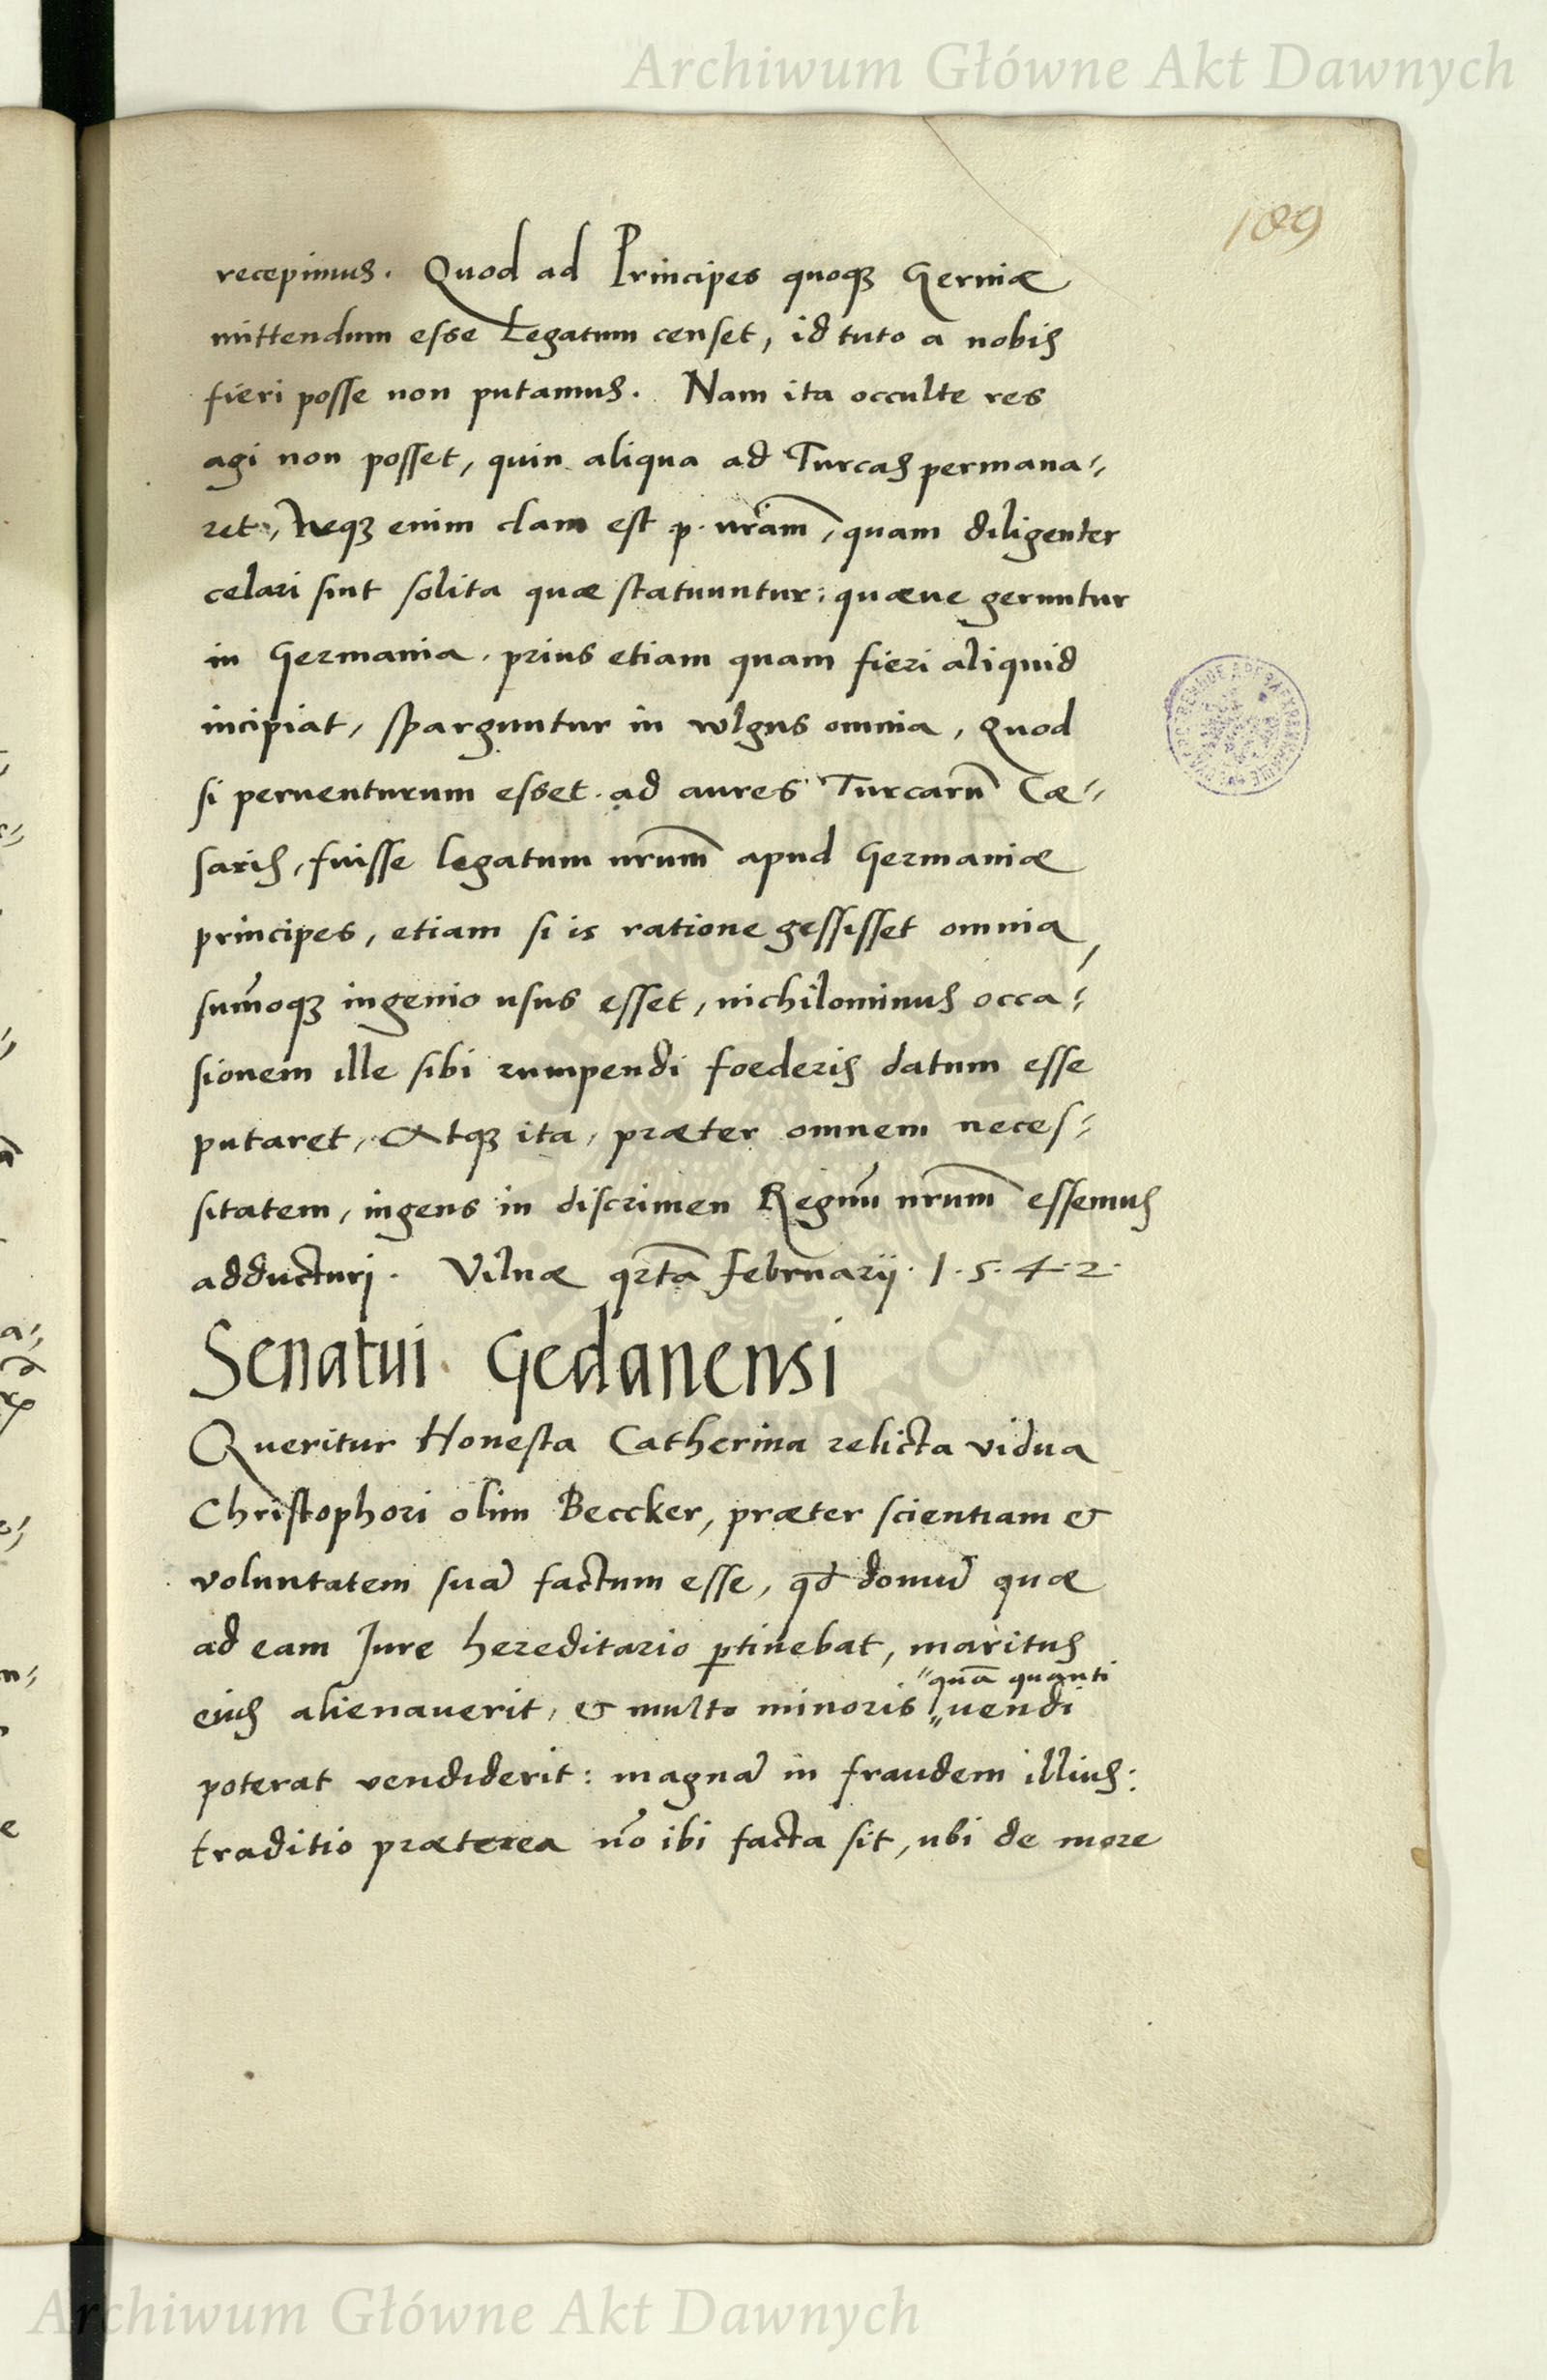 Archiwum Główne Akt Dawnych
189
recepimus. Quod ad Principes quoqꝫ Germæ
mittendum esse Legatum censet, id tuto a nobis
fieri posse non putamus. Nam ita occulte res
agi non posset, quin aliqua ad Turcas permana-
ret, Neqꝫ enim clam est p. nrãm, quam diligenter
celari sint solita quæ statuuntur: quæue geruntur
in Germania. prius etiam quam fieri aliquid
incipiat, sparguntur in wlgus omnia, Quod
si peruenturum esset. ad aures Turcarũ Cæ-
saris, fuisse legatum nrũm apud Germaniæ
principes, etiam si is ratione gessisset omnia,
sum̃oqꝫ ingenio usus esset, nichilominus occa-
sionem ille sibi rumpendi foederis datum esse
putaret, Atqꝫ ita, præter omnem neces-
sitatem, ingens in discrimen Regnũ nrũm essemus
adducturi. Vilnæ qrtã februarij. 1.5.4.2.
Senatui Gedanensi
Queritur Honesta Catherina relicta vidua
Christophori olim Beccker, præter scientiam &
voluntatem suã factum esse, qđ domũ quæ
ad eam Jure hereditario ꝑtinebat, maritus
quã quanti
eius alienauerit, & multo minoris uendi
poterat vendiderit: magnã in fraudem illius:
traditio præterea nõ ibi facta sit, ubi de more
Archiwum Główne Akt Dawnych